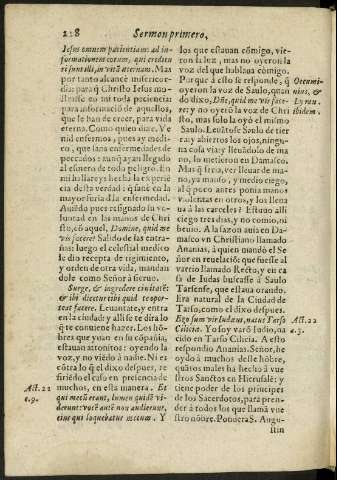 228 Sermon primero,
Iesus omnem patientiam: ad in-
formationem eorum, qui credituri
sunt illi, in vitã aeternam. Mas
por tanto alcance misericor-
dia: para q̃ Christo Iesus mo-
strasse en mi toda paciencia
para informacio de aquellos,
que le han de creer, para vida
eterna. Como quien dize, Ve
nid enfermos, pues ay medi-
co, que sana enfermedades de
peccados: aunq̃ ayan llegado
al estremo de toda peligro. En
mi lo hareys hecho la experiẽ
cia desta verdad: q̃ sane en la
mayor furia d̃la enfermedad.
Auiẽdo pues resignado su vo
luntad en las manos de Chri
sto, cõ aquel, Domine, quid me
vis facere? Salido de las entra-
ñas: luego el celestial medico
le dio recepta de regimiento,
y orden de otra vida, mandan
dole como Señor a sieruo.
Surge, & ingredere ciuitatẽ:
& ibi dicetur tibi quid te opor-
teat facere. Leuantate, y entra
en la ciudad y alli se dira lo
q̃ te conuiene hazer. Los hõ-
bres que yuan en su cõpañia,
estauan attonitos: oyendo la
voz, y no viẽdo à nadie. Ni es
cõtra lo q̃ el dixo despues, re
firiẽdo el caso en presencia de
muchos, en esta manera. Et
qui mecũ erant, lumen quidẽ vi-
derunt: vocẽ autẽ non audierunt,
eius qui loquebatur mecum. Y
Act. 22
c. 9.
los que estauan cõmigo, vie-
ron la luz, mas no oyeron la
voz del que hablaua cõmigo.
Porque à esto se responde, q̃
oyeron la voz de Saulo, quan
do dixo, Dñe, quid me vis face-
re: y no oyerõ la voz de Chri
sto, mas solo la oyò el mismo
Saulo. Leuãtose Saulo de tier
ra, y abiertos los ojos, ningu-
na cosa via: y lleuãdolo de ma
no, lo metieron en Damasco.
Mas q̃ fuera, ver lleuar de ma-
no, ya manso, y medio ciego,
al q̃ poco antes ponia manos
violentas en otros, y los lleua
ua à las carceles? Estuuo alli
ciego tres dias, y no comio, ni
beuio. A la sazon auia en Da-
masco vn Christiano llamado
Ananias, à quien mandò el Se
ñor en reuelaciõ: que fuesse al
varrio llamado Recto, y en ca
sa de Iudas buscasse à Saulo
Tarsense, que estaua orando.
Era natural de la Ciudad de
Tarso, como el dixo despues.
Ego sum vir Iudaeus, natus Tarso
Ciliciae. Yo soy varõ Iudio, na
cido en Tarso Cilicia. A esto
respondio Ananias. Señor, he
oydo à muchos deste hõbre,
quãtos males ha hecho à vue
stros Sanctos en Hierusalẽ: y
tiene poder de los principes
de los Sacerdotes, para pren-
der à todos los que llamã vue
stro nõbre. Pondera S. Augu-
stin
Oecume-
nius, &
Lyra
ibidem.
Act. 22
c. 3.